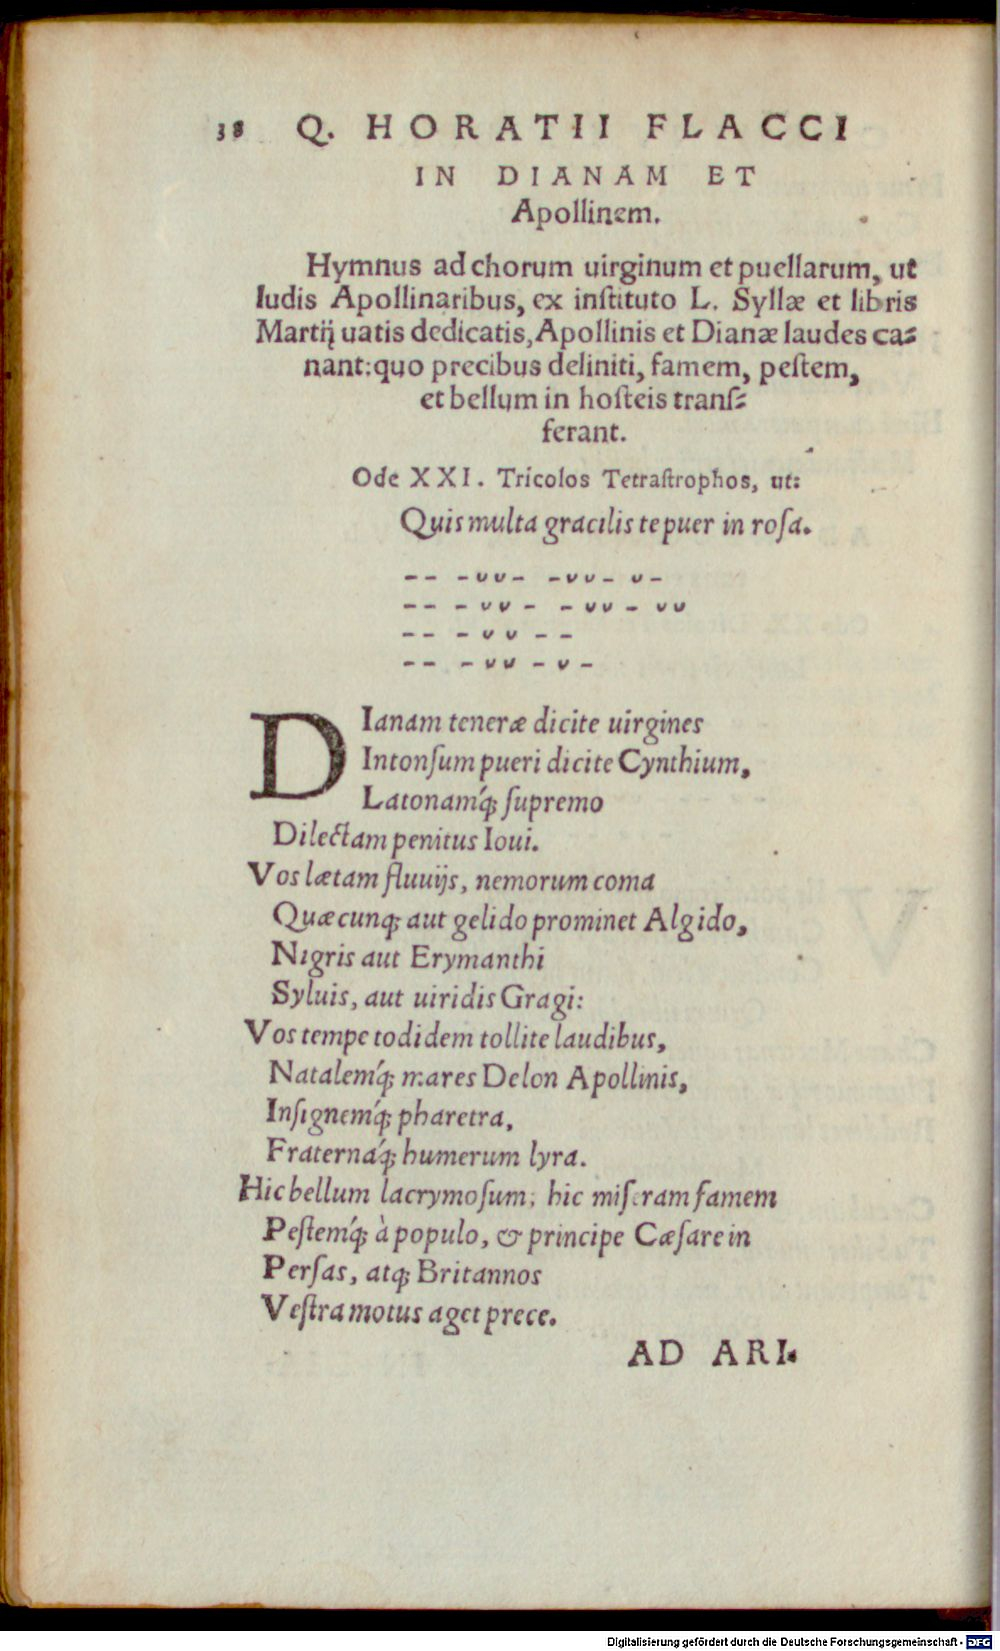 38 Q. HORATII FLACCI
IN DIANAM ET
Apollinem.
Hymnus ad chorum uirginum et puellarum, ut
ludis Apollinaribus, ex inſtituto L. Syllæ et libris
Martij uatis dedicatis, Apollinis et Dianæ laudes ca⸗
nant: quo precibus deliniti, famem, peſtem,
et bellum in hoſteis tranſ⸗
ferant.
Ode XXI. Tricolos Tetraſtrophos, ut:
Quis multa gracilis te puer in roſa.
-- -υυ- -υυ- υ-
-- -υυ- -υυ- υυ
-- -υυ --
-- -υυ -υ-
DIanam teneræ dicite uirgines
Intonſum pueri dicite Cynthium,
Latonamq́; ſupremo
Dilectam penitus Ioui.
Vos lætam fluuijs, nemorum coma
Quæcunq; aut gelido prominet Algido,
Nigris aut Erymanthi
Syluis, aut uiridis Gragi:
Vos tempe todidem tollite laudibus,
Natalemq́; mares Delon Apollinis,
Inſignemq́; pharetra,
Fraternaq́; humerum lyra.
Hic bellum lacrymoſum, hic miſeram famem
Peſtemq́; à populo, & principe Cæſare in
Perſas, atq; Britannos
Veſtra motus aget prece.
AD ARI.
Digitalisierung gefördert durch die Deutsche Forschungsgemeinschaft - DFG